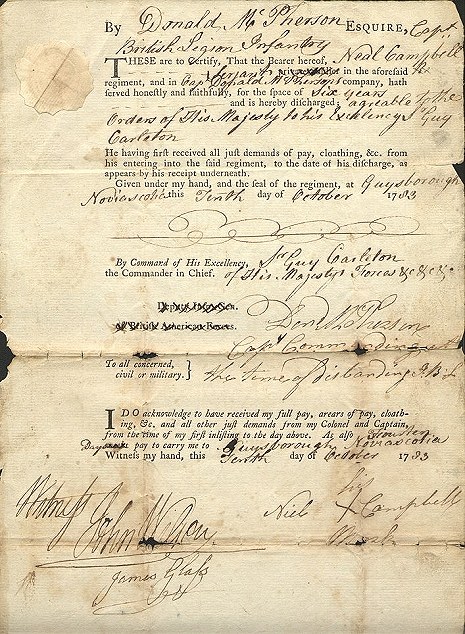 By Donald McPherson ESQUIRE, Capt
British Legion Infantry
THESE are to Certify, That the Bearer hereof, Neal Campbell
in the aforesaid
regiment, and in Capt Donald McPhersons company, hath
served honestly and faithfully, for the space of Six years
and is hereby discharged; agreable to the
Orders of His Majesty & his Excellency Sr Guy
Carleton
He having first received all just demands of pay, cloathing, &c. from
his entering into the said regiment, to the date of his discharge, as
appears by his receipt underneath.
Given under my hand, and the seal of the regiment, at Guysborough
Novascotia this Tenth day of October 1783
By Command of His Excellency, Sr Guy Carleton
the Commander in Chief. of His Majestys Forces &c &c &c
Deputy
All British American Forces.
Don McPherson
Capt Commanding at
To all concerned,
civil or military.} the time of disbanding B L
I DO acknowledge to have received my full pay, arears of pay, cloath-
ing, &c. and all other just demands from my Colonel and Captain,
from the time of my first inlisting to the day above. At also fourteen
Days pay to carry me to Guysborough Novascotia
Witness my hand, this Tenth day of October 1783
Witness
his
Niel X Campbell
Mark
John McKay
James Glass